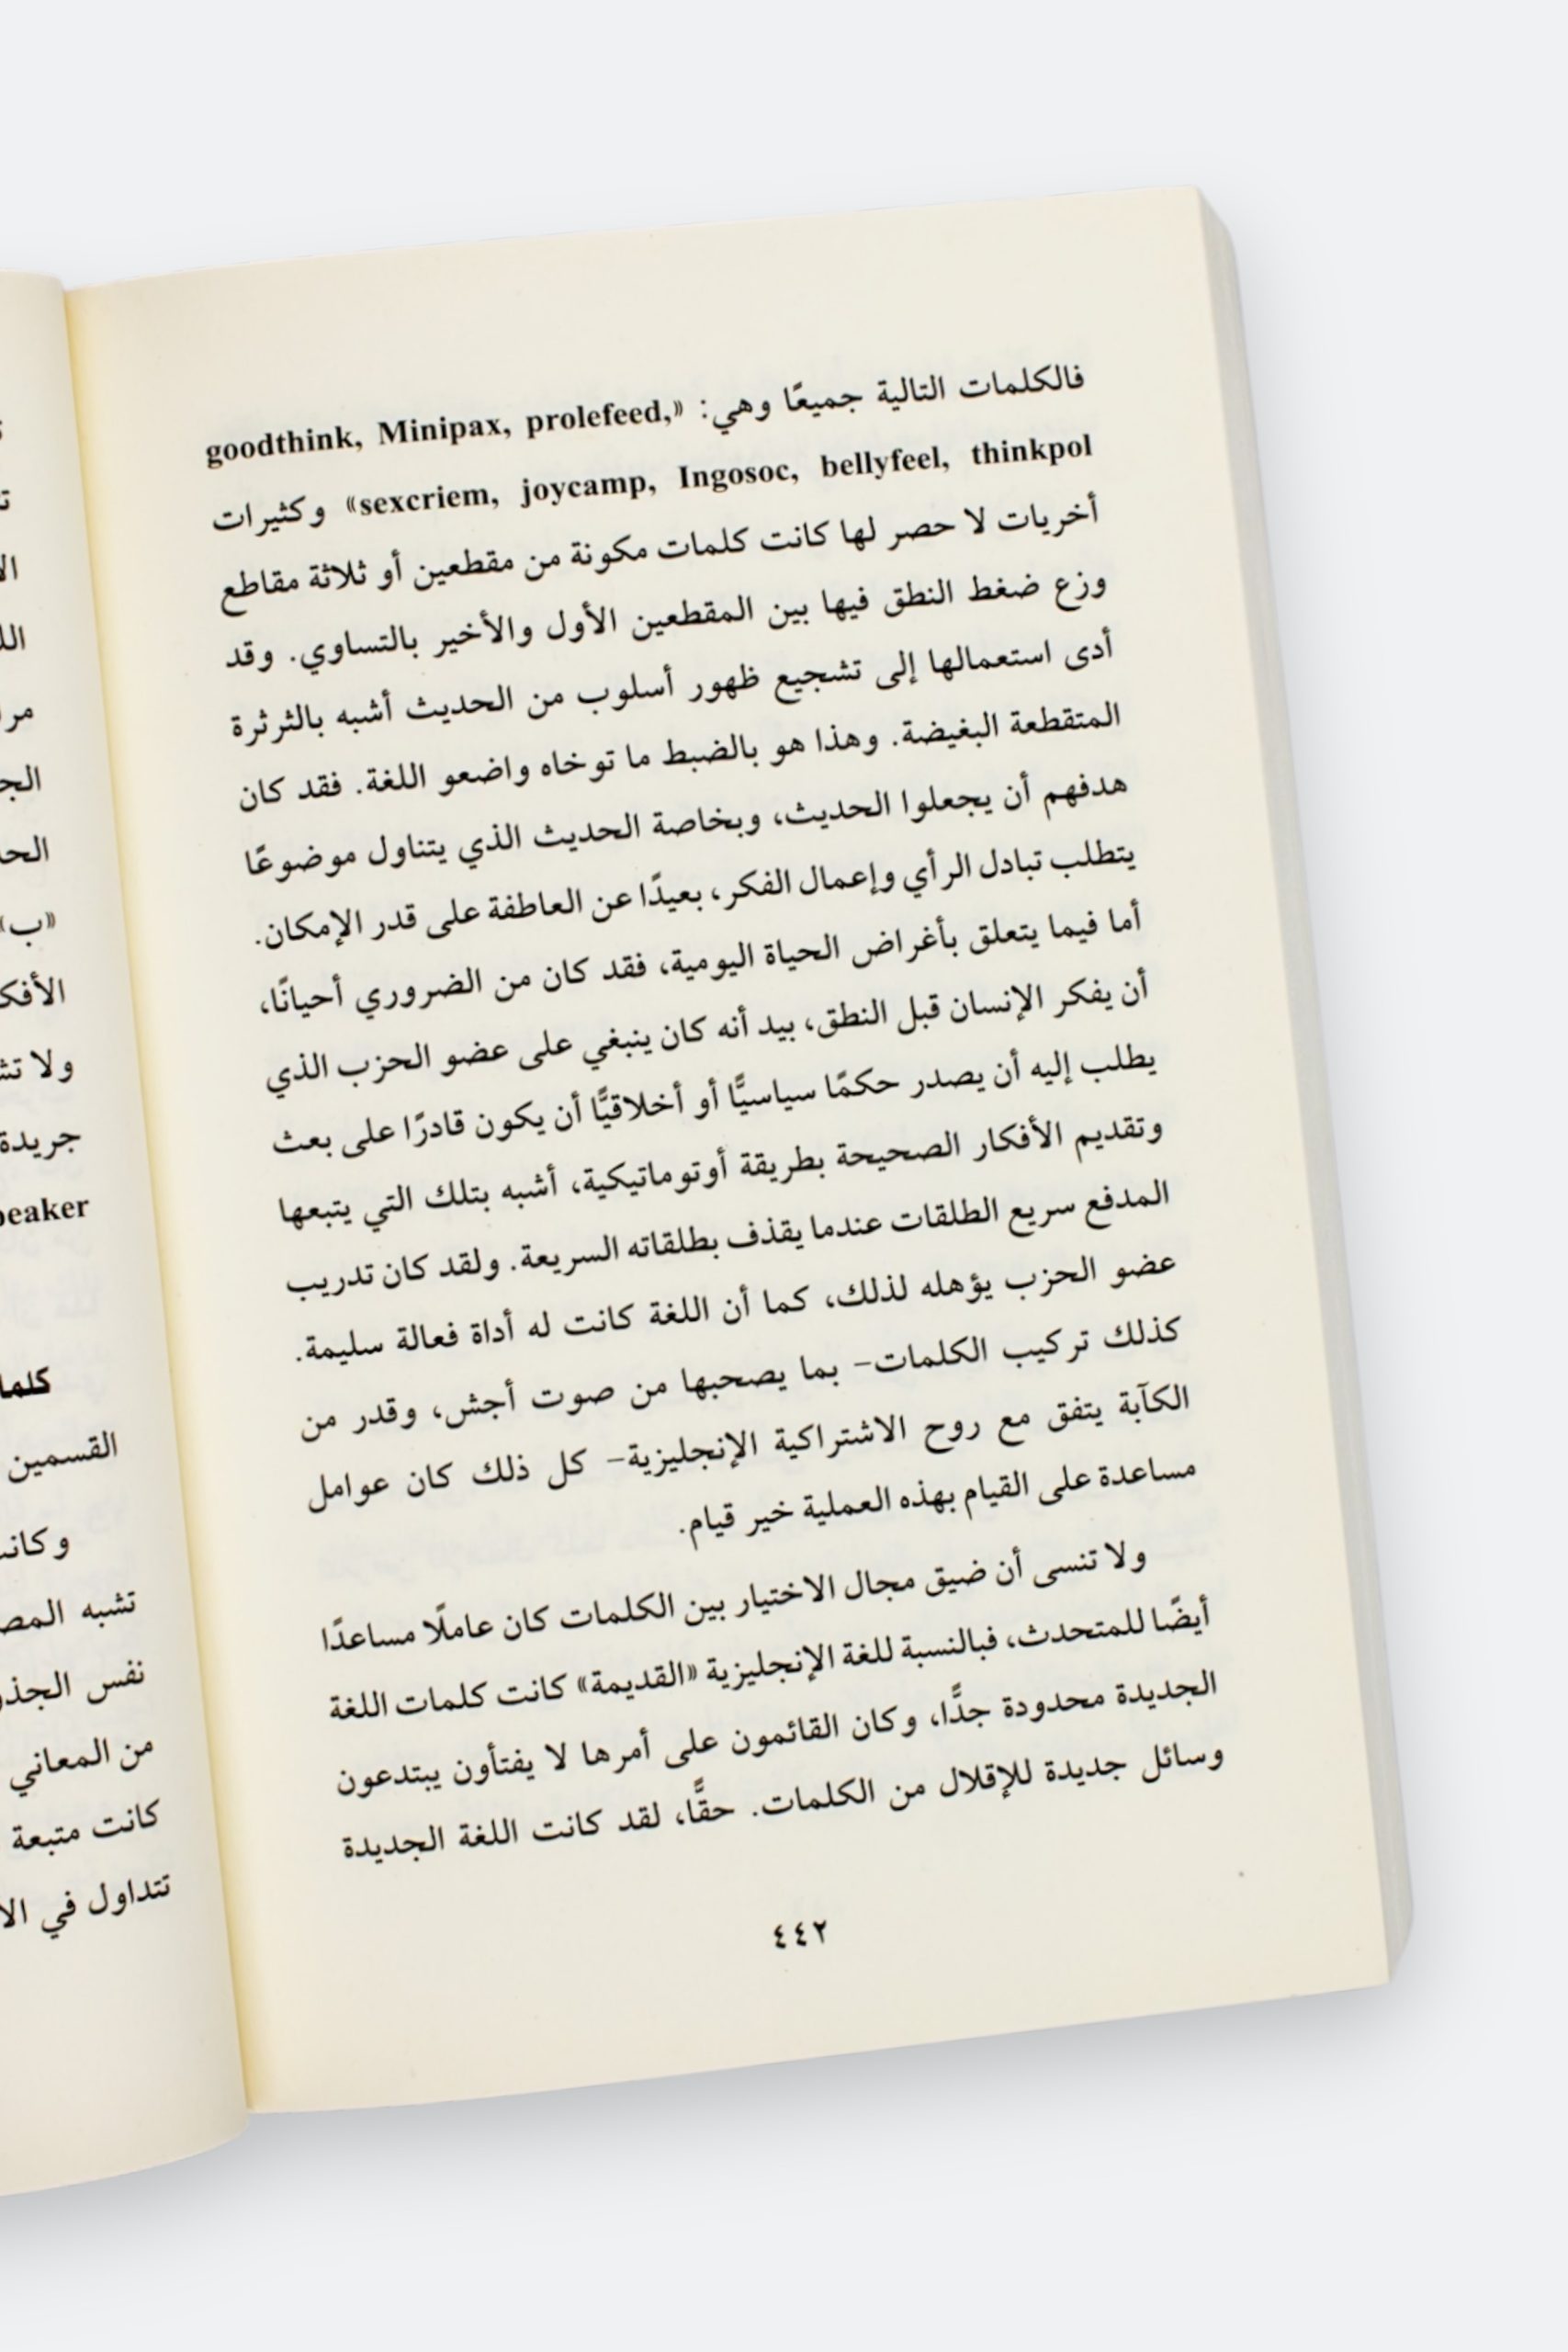 فالكلمات التالية جميعًا وهي: «goodthink, Minipax, prolefeed,
sexcriem, joycamp, Ingosoc, bellyfeel, thinkpol» وكثيرات
أخريات لا حصر لها كانت كلمات مكونة من مقطعين أو ثلاثة مقاطع
وزع ضغط النطق فيها بين المقطعين الأول والأخير بالتساوي. وقد
أدى استعمالها إلى تشجيع ظهور أسلوب من الحديث أشبه بالثرثرة
المتقطعة البغيضة. وهذا هو بالضبط ما توخاه واضعو اللغة. فقد كان
هدفهم أن يجعلوا الحديث، وبخاصة الحديث الذي يتناول موضوعًا
يتطلب تبادل الرأي وإعمال الفكر، بعيدًا عن العاطفة على قدر الإمكان.
أما فيما يتعلق بأغراض الحياة اليومية، فقد كان من الضروري أحيانًا،
أن يفكر الإنسان قبل النطق، بيد أنه كان ينبغي على عضو الحزب الذي
يطلب إليه أن يصدر حكمًا سياسيًّا أو أخلاقيًّا أن يكون قادرًا على بعث
وتقديم الأفكار الصحيحة بطريقة أوتوماتيكية، أشبه بتلك التي يتبعها
المدفع سريع الطلقات عندما يقذف بطلقاته السريعة. ولقد كان تدريب
عضو الحزب يؤهله لذلك، كما أن اللغة كانت له أداة فعالة سليمة.
كذلك تركيب الكلمات- بما يصحبها من صوت أجش، وقدر من
الكآبة يتفق مع روح الاشتراكية الإنجليزية- كل ذلك كان عوامل
مساعدة على القيام بهذه العملية خير قيام.
ولا تنسى أن ضيق مجال الاختيار بين الكلمات كان عاملًا مساعدًا
أيضًا للمتحدث، فبالنسبة للغة الإنجليزية «القديمة» كانت كلمات اللغة
الجديدة محدودة جدًّا، وكان القائمون على أمرها لا يفتأون يبتدعون
وسائل جديدة للإقلال من الكلمات. حقًّا، لقد كانت اللغة الجديدة
٤٤٢
«ب»
ولا
جريدة
القسمين
تشبه
نفس
من المعاني
كانت متبعة
تتداول في